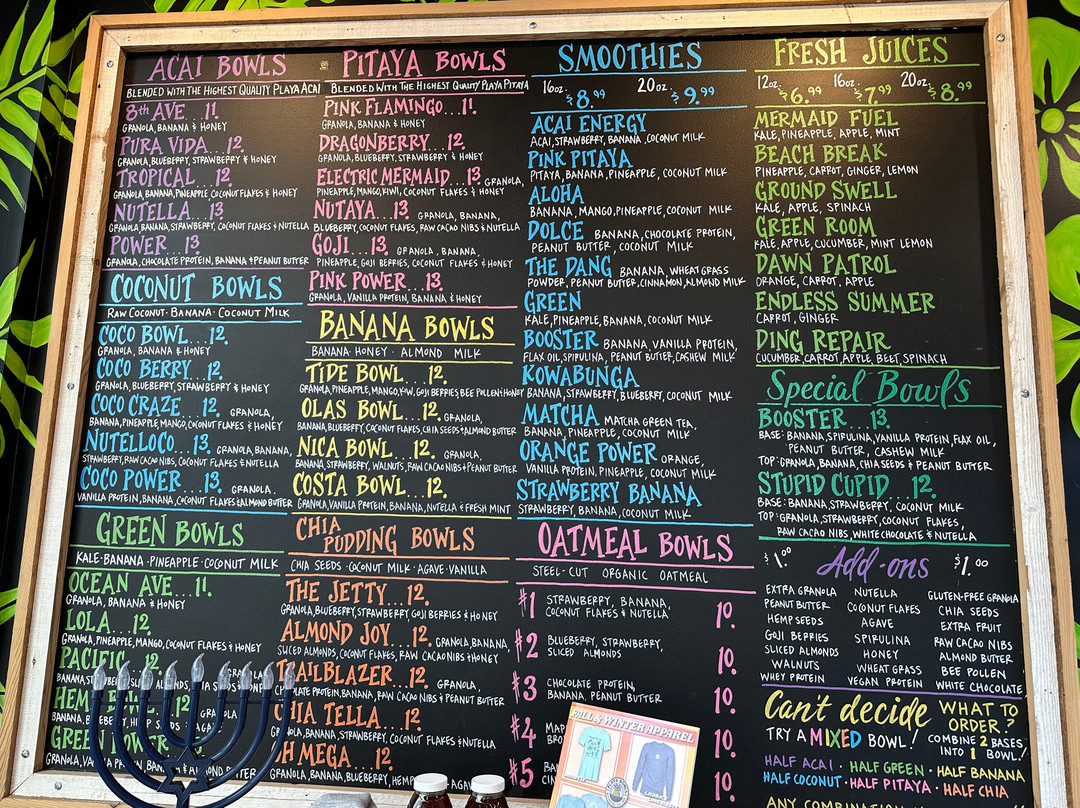 ACAI BOWLS
BLENDED WITH THE HIGHEST QUALITY PLAYA ACAI
8th AVE...11.
GRANOLA, BANANA & HONEY
PURA VIDA...12.
GRANOLA, BLUEBERRY, STRAWBERRY & HONEY
TROPICAL...12.
GRANOLA, BANANA, PINEAPPLE, COCONUT FLAKES & HONEY
NUTELLA...13
GRANOLA, BANANA, STRAWBERRY, COCONUT FLAKES & NUTELLA
POWER...13
GRANOLA, CHOCOLATE PROTEIN, BANANA & PEANUT BUTTER
COCONUT BOWLS
RAW COCONUT · BANANA · COCONUT MILK
COCO BOWL...12.
GRANOLA, BANANA & HONEY
COCO BERRY...12.
GRANOLA, BLUEBERRY, STRAWBERRY & HONEY
COCO CRAZE...12. GRANOLA,
BANANA, PINEAPPLE, MANGO, COCONUT FLAKES & HONEY
NUTELLOCO...13. GRANOLA, BANANA,
STRAWBERRY, RAW CACAO NIBS, COCONUT FLAKES & NUTELLA
COCO POWER...13. GRANOLA,
VANILLA PROTEIN, BANANA, COCONUT FLAKES & ALMOND BUTTER
GREEN BOWLS
KALE · BANANA · PINEAPPLE · COCONUT MILK
OCEAN AVE...11.
GRANOLA, BANANA & HONEY
LOLA...12.
GRANOLA, PINEAPPLE, MANGO, COCONUT FLAKES & HONEY
PACIFIC 12.
HEM
GREEN POWER
PITAYA BOWLS
BLENDED WITH THE HIGHEST QUALITY PLAYA PITAYA
PINK FLAMINGO...11.
GRANOLA, BANANA & HONEY
DRAGONBERRY...12.
GRANOLA, BLUEBERRY, STRAWBERRY & HONEY
ELECTRIC MERMAID...13. GRANOLA,
PINEAPPLE, MANGO, KIWI, COCONUT FLAKES & HONEY
NUTAYA...13. GRANOLA, BANANA,
BLUEBERRY, COCONUT FLAKES, RAW CACAO NIBS & NUTELLA
GOJI...13. GRANOLA, BANANA,
PINEAPPLE, GOJI BERRIES, COCONUT FLAKES & HONEY
PINK POWER...13.
GRANOLA, VANILLA PROTEIN, BANANA & HONEY
BANANA BOWLS
BANANA · HONEY · ALMOND MILK
TIDE BOWL...12.
GRANOLA, PINEAPPLE, MANGO, KIWI, GOJI BERRIES, BEE POLLEN & HONEY
OLAS BOWL...12. GRANOLA,
BANANA, BLUEBERRY, COCONUT FLAKES, CHIA SEEDS & ALMOND BUTTER
NICA BOWL...12. GRANOLA,
BANANA, STRAWBERRY, WALNUTS, RAW CACAO NIBS & PEANUT BUTTER
COSTA BOWL...12.
GRANOLA, VANILLA PROTEIN, BANANA, NUTELLA & FRESH MINT
CHIA PUDDING BOWLS
CHIA SEEDS · COCONUT MILK · AGAVE · VANILLA
THE JETTY...12.
GRANOLA, BLUEBERRY, STRAWBERRY, GOJI BERRIES & HONEY
ALMOND JOY...12. GRANOLA, BANANA,
SLICED ALMONDS, COCONUT FLAKES, RAW CACAO NIBS & HONEY
TRAILBLAZER...12. GRANOLA,
PROTEIN, BANANA, RAW CACAO NIBS & PEANUT BUTTER
CHIA TELLA...12.
GRANOLA, BANANA, STRAWBERRY, COCONUT FLAKES & NUTELLA
OH MEGA...12.
GRANOLA, BANANA, BLUEBERRY, HEMP
SMOOTHIES
16oz. $8.99 20oz. $9.99
ACAI ENERGY
ACAI, STRAWBERRY, BANANA, COCONUT MILK
PINK PITAYA
PITAYA, BANANA, PINEAPPLE, COCONUT MILK
ALOHA
BANANA, MANGO, PINEAPPLE, COCONUT MILK
DOLCE BANANA, CHOCOLATE PROTEIN,
PEANUT BUTTER, COCONUT MILK
THE DANG BANANA, WHEATGRASS
POWDER, PEANUT BUTTER, CINNAMON, ALMOND MILK
GREEN
KALE, PINEAPPLE, BANANA, COCONUT MILK
BOOSTER BANANA, VANILLA PROTEIN,
FLAX OIL, SPIRULINA, PEANUT BUTTER, CASHEW MILK
KOWABUNGA
BANANA, STRAWBERRY, BLUEBERRY, COCONUT MILK
MATCHA MATCHA GREEN TEA,
BANANA, PINEAPPLE, COCONUT MILK
ORANGE POWER ORANGE,
VANILLA PROTEIN, PINEAPPLE, COCONUT MILK
STRAWBERRY BANANA
STRAWBERRY, BANANA, COCONUT MILK
OATMEAL BOWLS
STEEL-CUT ORGANIC OATMEAL
#1 STRAWBERRY, BANANA,
COCONUT FLAKES & NUTELLA 10.
#2 BLUEBERRY, STRAWBERRY,
SLICED ALMONDS 10.
#3 CHOCOLATE PROTEIN,
BANANA, PEANUT BUTTER 10.
#4 10.
#5 10.
FALL & WINTER APPAREL
FRESH JUICES
12oz. $6.99 16oz. $7.99 20oz. $8.99
MERMAID FUEL
KALE, PINEAPPLE, APPLE, MINT
BEACH BREAK
PINEAPPLE, CARROT, GINGER, LEMON
GROUND SWELL
KALE, APPLE, SPINACH
GREEN ROOM
KALE, APPLE, CUCUMBER, MINT LEMON
DAWN PATROL
ORANGE, CARROT, APPLE
ENDLESS SUMMER
CARROT, GINGER
DING REPAIR
CUCUMBER, CARROT, APPLE, BEET, SPINACH
Special Bowls
BOOSTER...13.
BASE: BANANA, SPIRULINA, VANILLA PROTEIN, FLAX OIL,
PEANUT BUTTER, CASHEW MILK
TOP: GRANOLA, BANANA, CHIA SEEDS & PEANUT BUTTER
STUPID CUPID...12.
BASE: BANANA, STRAWBERRY, COCONUT MILK
TOP: GRANOLA, STRAWBERRY, COCONUT FLAKES,
RAW CACAO NIBS, WHITE CHOCOLATE & NUTELLA
$1.00 Add-ons $1.00
EXTRA GRANOLA NUTELLA GLUTEN-FREE GRANOLA
PEANUT BUTTER COCONUT FLAKES CHIA SEEDS
HEMP SEEDS AGAVE EXTRA FRUIT
GOJI BERRIES SPIRULINA RAW CACAO NIBS
SLICED ALMONDS HONEY ALMOND BUTTER
WALNUTS WHEAT GRASS BEE POLLEN
WHEY PROTEIN VEGAN PROTEIN WHITE CHOCOLATE
Can't decide WHAT TO ORDER?
TRY A MIXED BOWL! COMBINE 2 BASES INTO 1 BOWL!
HALF ACAI · HALF GREEN · HALF BANANA
HALF COCONUT · HALF PITAYA · HALF CHIA
ANY COMBINATION